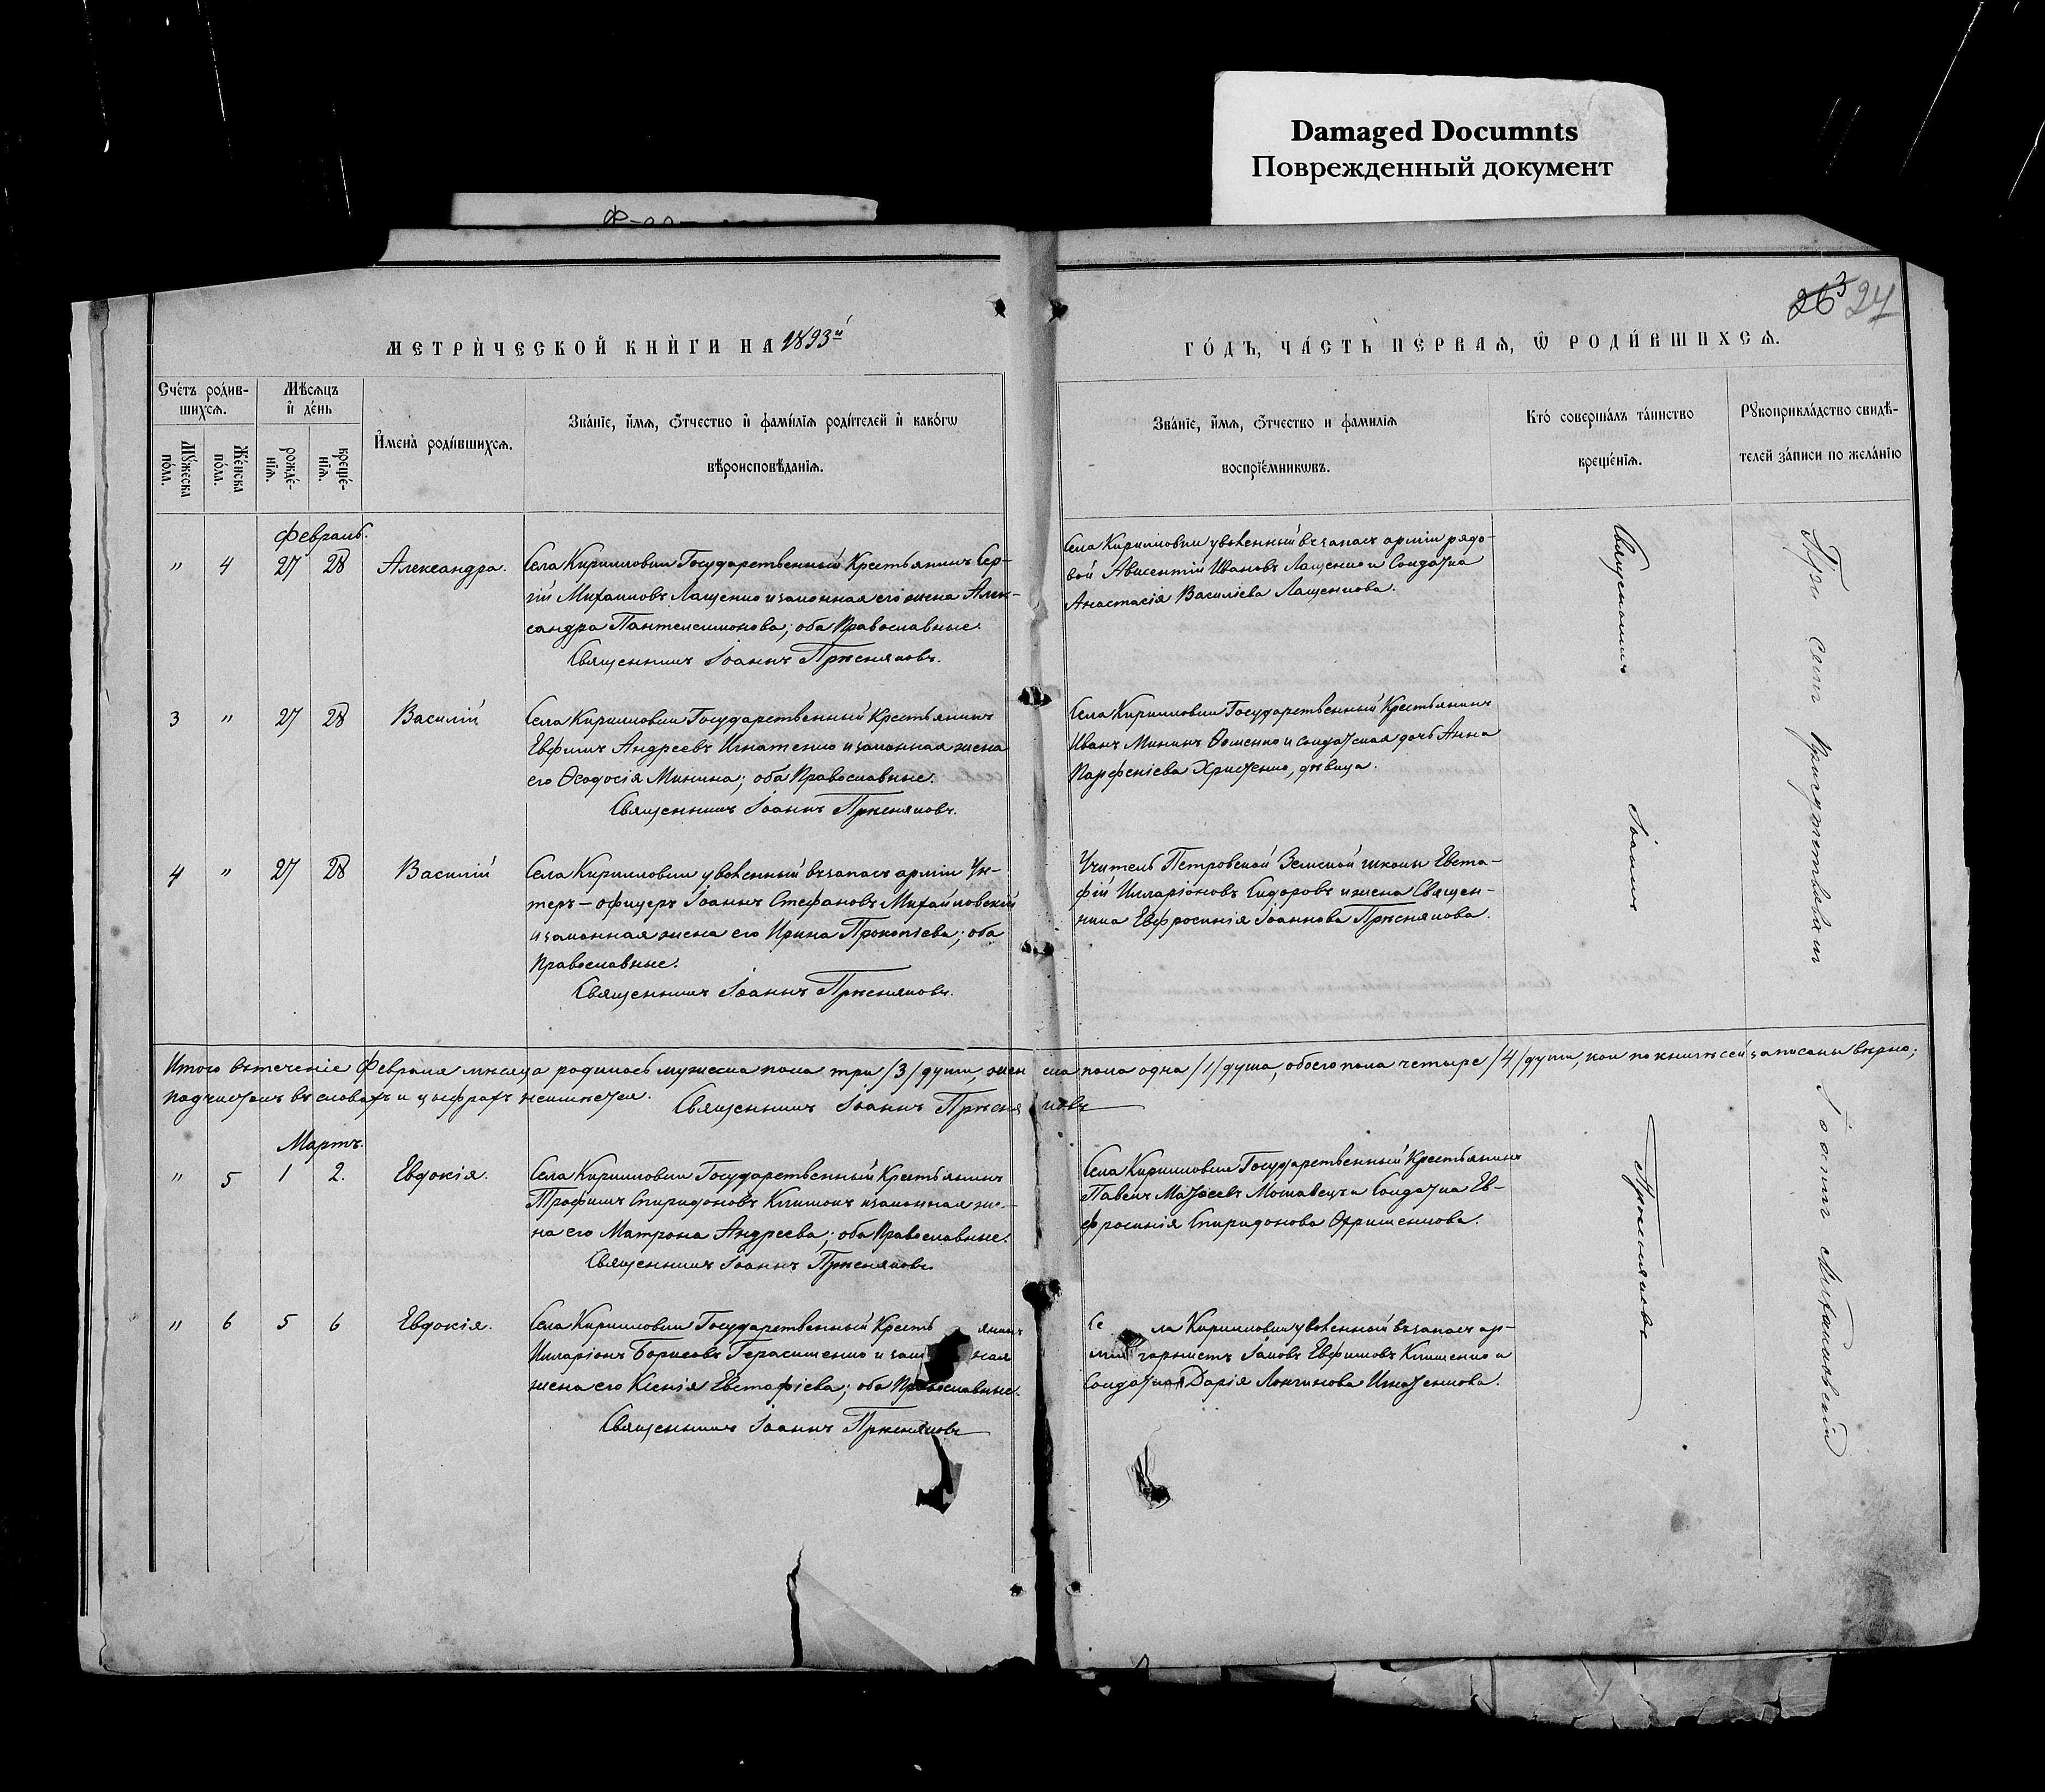 Damaged Documnts
Поврежденный документ
263 24
МЕТРИ́ЧЕСКОЙ КНИ́ГИ НА 1893й
ГО́ДЪ, ЧА́СТЬ ПЕ́РВАѦ, Ѿ РОДИ́ВШИХСѦ.
Сче́тъ роди́в-
шихсѧ.
Мѣ́сѧцъ
и҆ де́нь
Мꙋ́жеска по́ла.
Же́нска по́ла.
рожде́-
нїѧ.
креще́-
нїѧ.
И҆мена̀ роди́вшихсѧ.
Зва́нїе, и҆́мѧ, ѻ҆́тчество и҆ фами́лїѧ роди́телей и҆ како́гѡ
вѣроисповѣ́данїѧ.
Зва́нїе, и҆́мѧ, ѻ҆́тчество и фамилїѧ
воспрїе́мникѡвъ.
Кто́ соверша́лъ та́инство
креще́нїѧ.
Рꙋкоприкла́дство свидѣ́-
телей за́писи по жела́нїю
Февраль.
" 4 27 28 Александра.
Села Кирилловки Государственный Крестьянинъ Сер-
гій Михаиловъ Лащенко и законная его жена Алек-
сандра Пантелеимонова; оба Православные.
Священникъ Іоаннъ Прѣсняковъ.
Села Кирилловки уволенный въ запасъ арміи рядо-
вой Авксентій Ивановъ Лащенко и Солдатка
Анастасія Василіева Лащенкова.
3 " 27 28 Василій
Села Кирилловки Государственный Крестьянинъ
Евфимъ Андреевъ Игнатенко и законная жена
его Ѳеодосія Минина; оба Православные.
Священникъ Іоаннъ Прѣсняковъ.
Села Кирилловки Государственный Крестьянинъ
Иванъ Мининъ и солдатская дочь Анна
Парфеніева Христенко, дѣвица.
4 " 27 28 Василій
Села Кирилловки уволенный въ запасъ арміи Ун-
теръ-офицеръ Іоаннъ Стефановъ Михайловскій
и законная жена его Ирина Прокопіева; оба
Православные.
Священникъ Іоаннъ Прѣсняковъ.
Учитель Петровской Земской школы Евста-
фій Илларіоновъ Сидоровъ и жена Священ-
ника Евфросинія Іоаннова Прѣснякова.
Итого въ теченіе Февраля мѣсяца родилось мужеска пола три /3/ души, жен ска пола одна /1/ душа, обоего пола четыре /4/ души, кои по книгѣ сей записаны вѣрно;
подчистокъ въ словахъ и цыфрахъ не имѣется. Священникъ Іоаннъ Прѣсня ковъ
Мартъ.
" 5 1 2. Евдокія.
Села Кирилловки Государственный Крестьянинъ
Трофимъ Спиридоновъ Климокъ и законная же-
на его Матрона Андреева; оба Православные.
Священникъ Іоаннъ Прѣсняковъ
Села Кирилловки Государственный Крестьянинъ
Павелъ и Солдатка Ев-
фросинія Спиридонова
" 6 5 6 Евдокія.
Села Кирилловки Государственный Кресть янинъ
Илларіонъ Борисовъ Герасименко и зак ная
жена его Ксенія Евстафіева; оба Православные.
Священникъ Іоаннъ Прѣсняковъ
Се ла Кирилловки уволенный въ запасъ ар-
міи горнистъ Іаковъ Евфимовъ Клименко и
Солдатка Дарія Лонгинова Игнатенкова.
Священникъ Іоаннъ Прѣсняковъ
При семъ присутствовалъ Іоаннъ Михайловскій